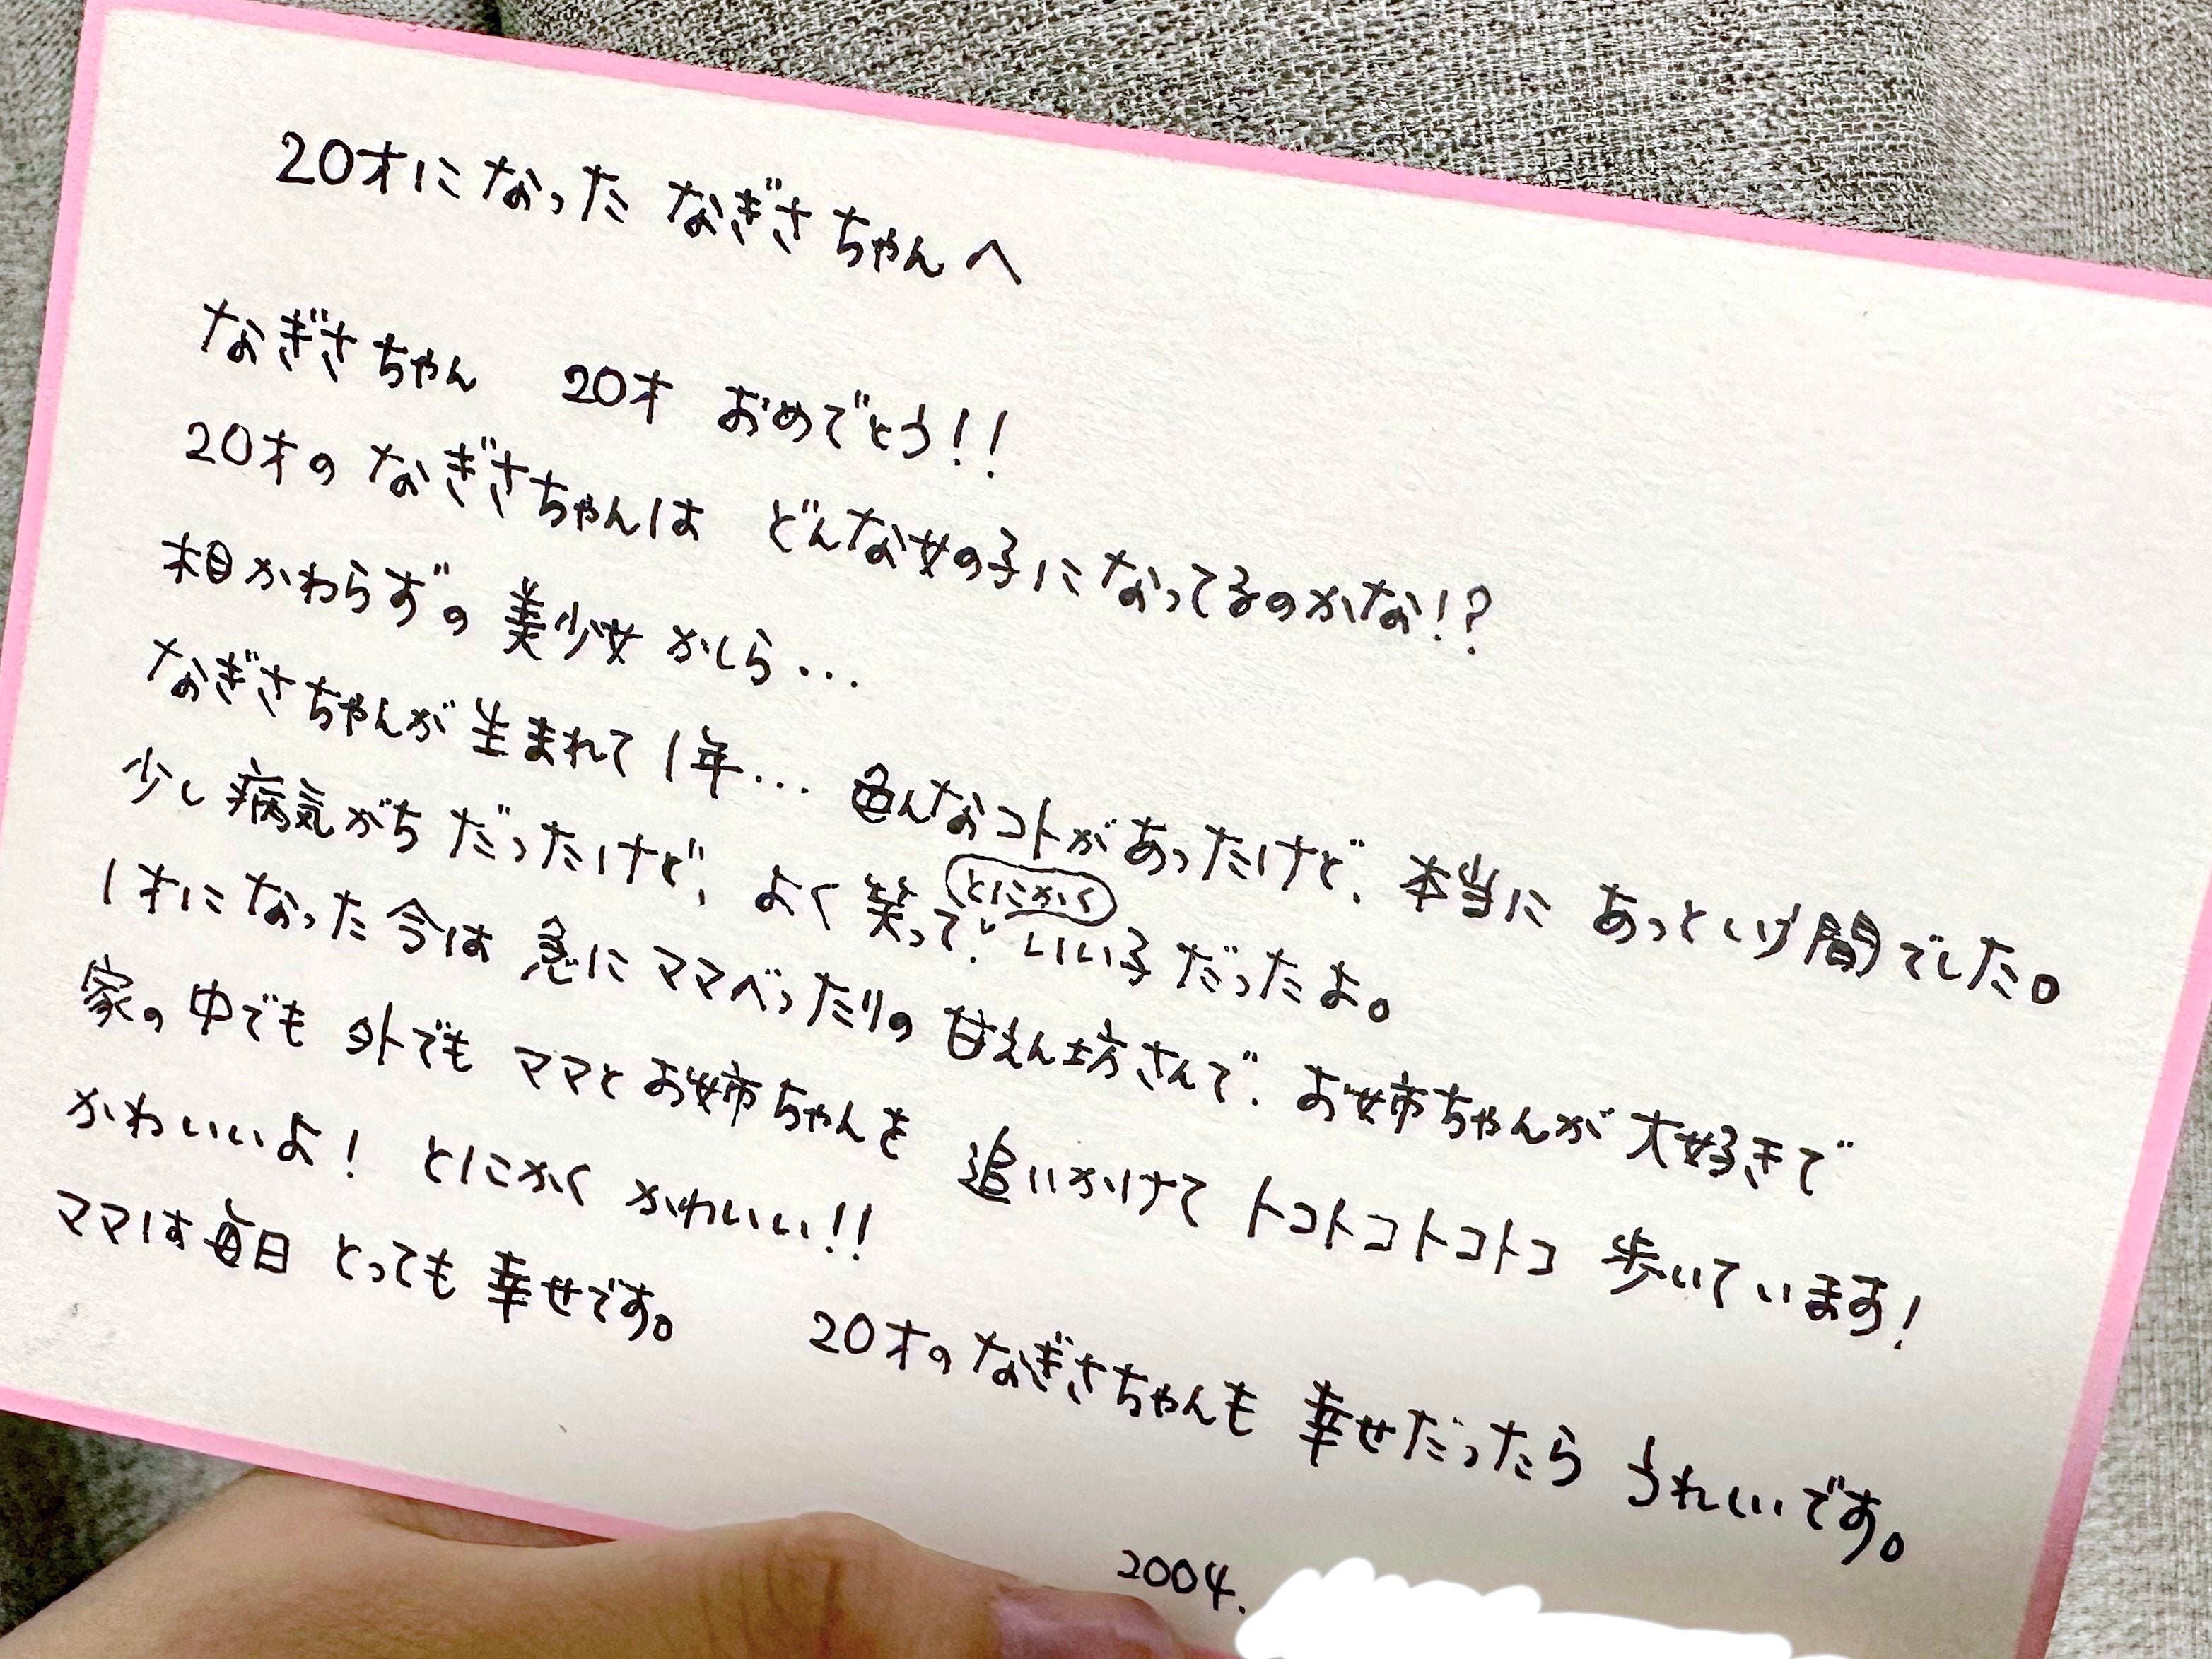 20才になった なぎさちゃんへ
なぎさちゃん 20才 おめでとう!!
20才の なぎさちゃんは どんな女の子になってるのかな!?
相かわらずの 美少女 かしら…
なぎさちゃんが 生まれて 1年… 色んなコトがあったけど、本当に あっという間でした。
少し病気がち だったけど、よく笑って、とにかく いい子だったよ。
1才になった今は 急にママべったりの 甘えん坊さんで、お姉ちゃんが大好きで
家の中でも 外でも ママとお姉ちゃんを 追いかけて トコトコトコトコ 歩いています!
かわいいよ! とにかく かわいい!!
ママは毎日 とっても 幸せです。 20才のなぎさちゃんも 幸せだったら うれしいです。
2004.